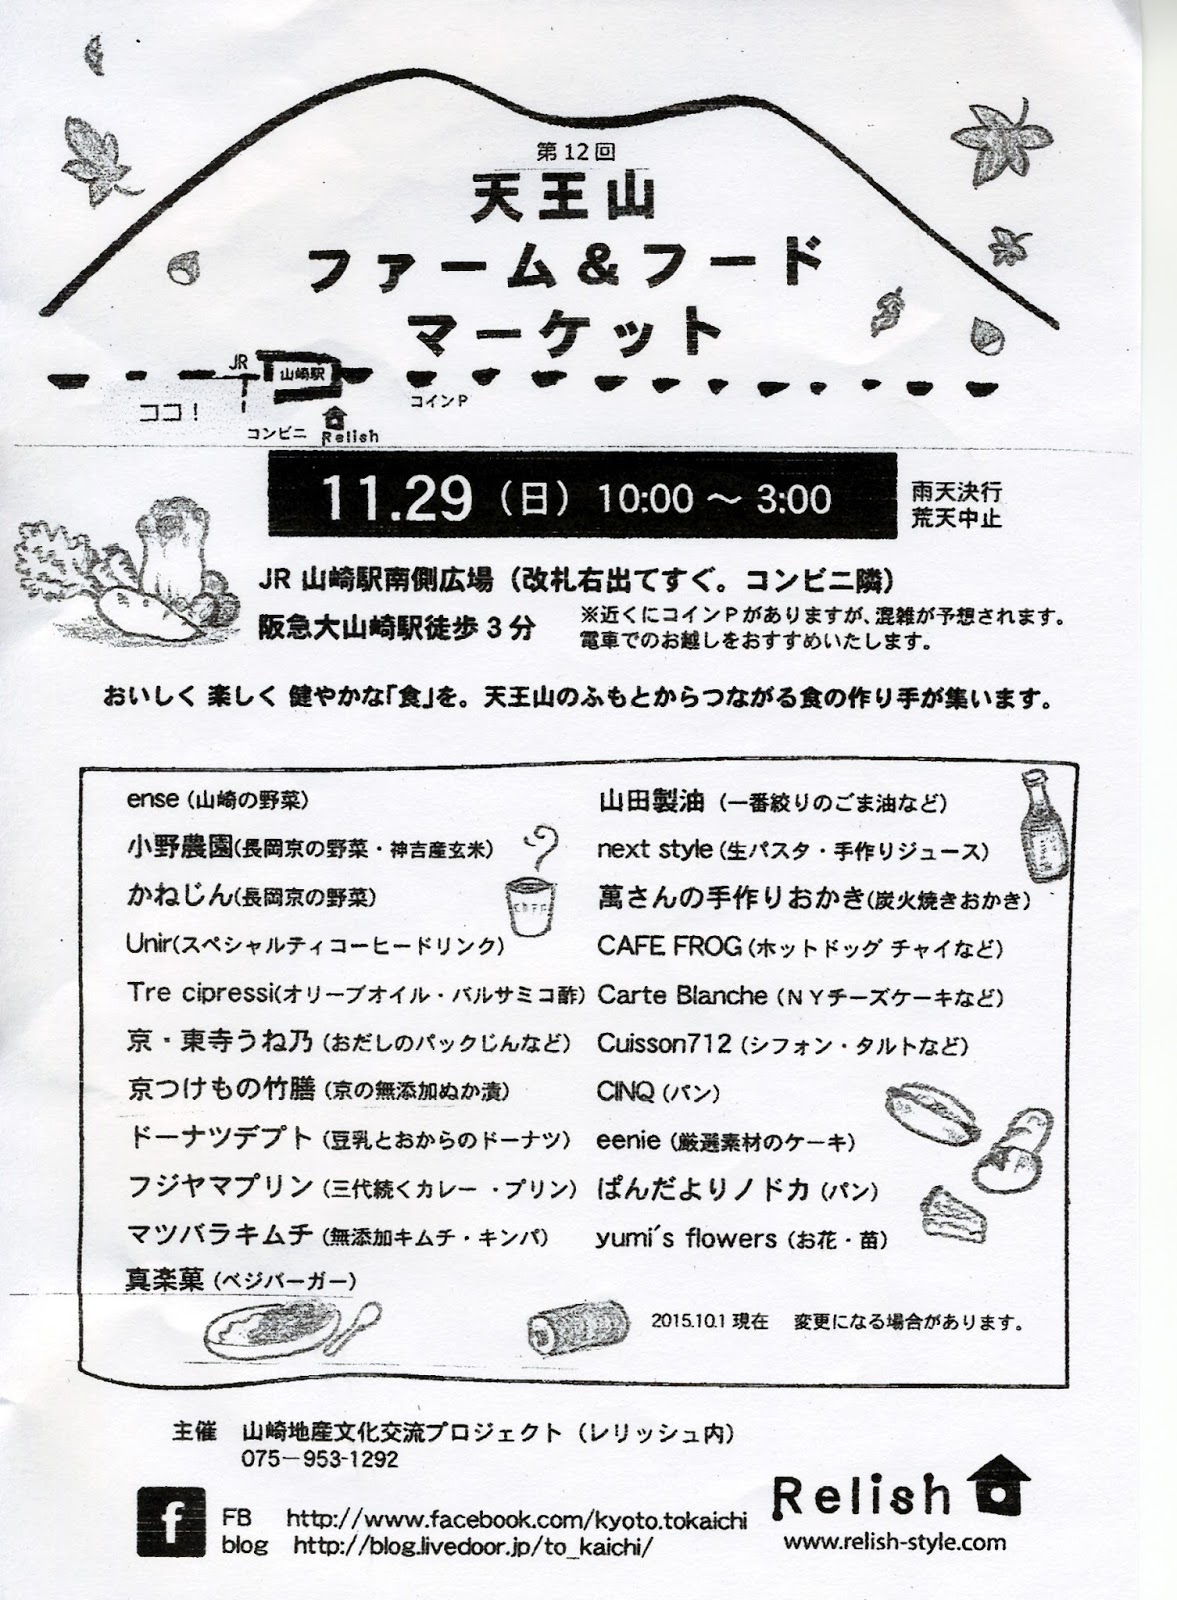 第12回
天王山
ファーム&フード
マーケット
JR
山崎駅
ココ！
コンビニ
Relish
コインP
11.29（日）10:00 ～ 3:00
雨天決行
荒天中止
JR 山崎駅南側広場（改札右出てすぐ。コンビニ隣）
阪急大山崎駅徒歩3分
※近くにコインPがありますが、混雑が予想されます。
電車でのお越しをおすすめいたします。
おいしく 楽しく 健やかな「食」を。天王山のふもとからつながる食の作り手が集います。
ense（山崎の野菜）
小野農園(長岡京の野菜・神吉産玄米）
かねじん(長岡京の野菜）
Unir(スペシャルティコーヒードリンク）
Tre cipressi(オリーブオイル・バルサミコ酢）
京・東寺うね乃（おだしのパックじんなど）
京つけもの竹膳（京の無添加ぬか漬）
ドーナツデプト（豆乳とおからのドーナツ）
フジヤマプリン（三代続くカレー・プリン）
マツバラキムチ（無添加キムチ・キンパ）
真楽菓（ベジバーガー）
CAFE
山田製油（一番絞りのごま油など）
next style（生パスタ・手作りジュース）
萬さんの手作りおかき(炭火焼きおかき）
CAFE FROG（ホットドッグ チャイなど）
Carte Blanche（NYチーズケーキなど）
Cuisson712（シフォン・タルトなど）
CINQ（パン）
eenie（厳選素材のケーキ）
ぱんだよりノドカ（パン）
yumi's flowers（お花・苗）
2015.10.1 現在　変更になる場合があります。
主催　山崎地産文化交流プロジェクト（レリッシュ内）
075－953-1292
f
FB　http://www.facebook.com/kyoto.tokaichi
blog　http://blog.livedoor.jp/to_kaichi/
Relish
www.relish-style.com